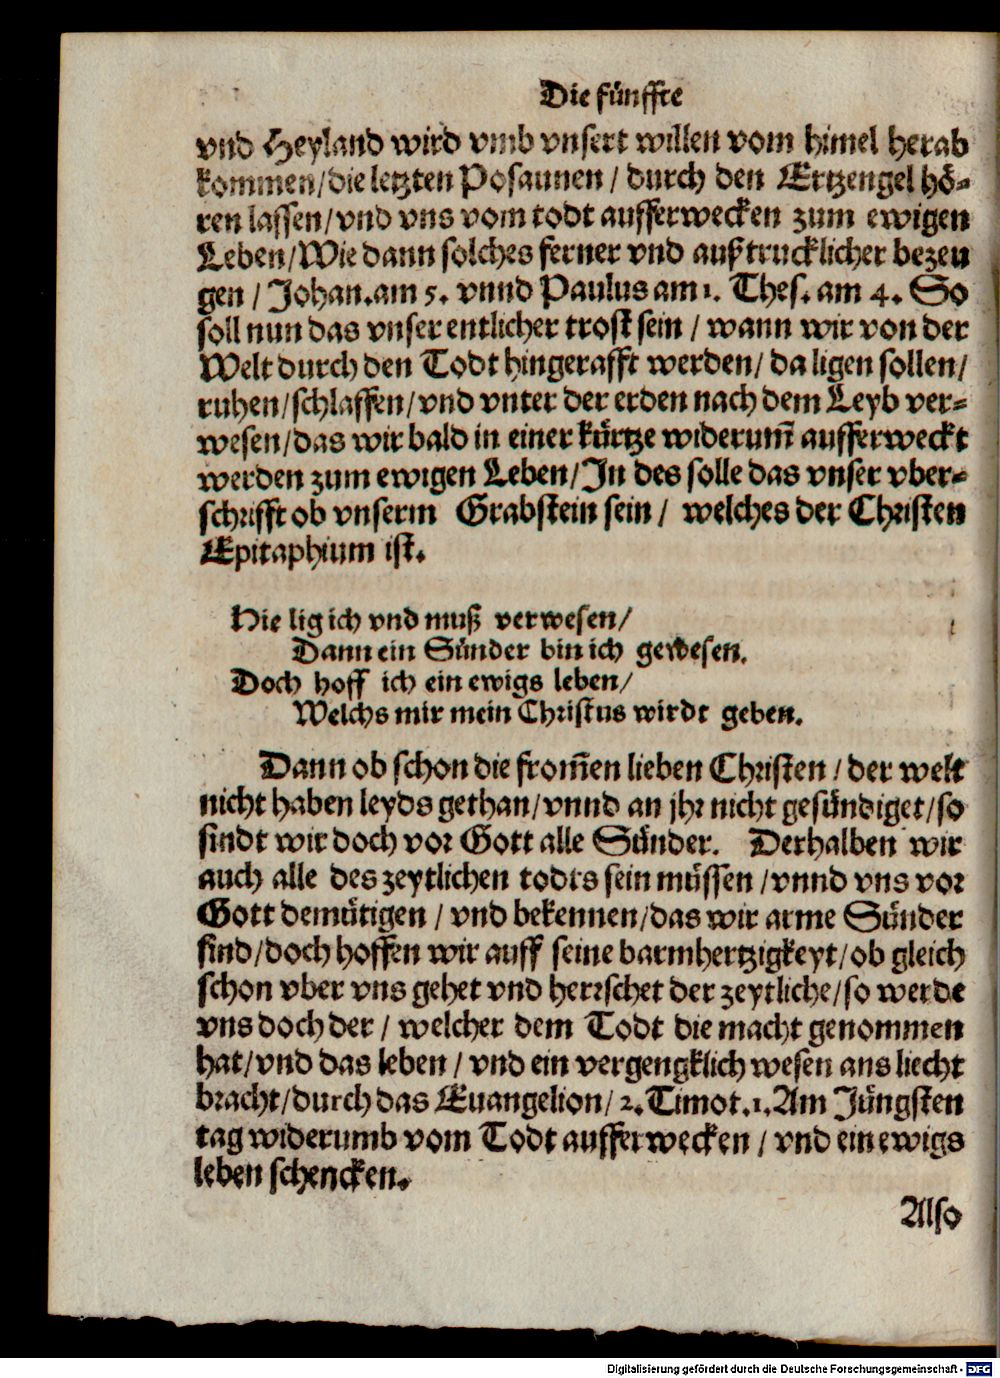 Die fünffte
vnd Heyland wird vmb vnsert willen vom himel herab
kommen/die letzten Posaunen / durch den Ertzengel hö-
ren lassen/vnd vns vom todt aufferwecken zum ewigen
Leben/Wie dann solches ferner vnd außtrucklicher bezeu
gen / Johan.am 5. vnnd Paulus am 1. Thes. am 4. So
soll nun das vnser entlicher trost sein / wann wir von der
Welt durch den Todt hingerafft werden/ da ligen sollen/
ruhen/schlaffen/vnd vnter der erden nach dem Leyb ver-
wesen/das wir bald in einer kürtze widerum̃ aufferweckt
werden zum ewigen Leben/In des solle das vnser vber-
schrifft ob vnserm Grabstein sein / welches der Christen
Epitaphium ist.
Hie lig ich vnd muß verwesen/
Dann ein Sünder bin ich gewesen.
Doch hoff ich ein ewigs leben/
Welchs mir mein Christus wirdt geben.
Dann ob schon die from̃en lieben Christen / der welt
nicht haben leyds gethan/vnnd an jhr nicht gesündiget/so
sindt wir doch vor Gott alle Sünder. Derhalben wir
auch alle des zeytlichen todts sein müssen /vnnd vns vor
Gott demütigen / vnd bekennen/das wir arme Sünder
sind/doch hoffen wir auff seine barmhertzigkeyt/ob gleich
schon vber vns gehet vnd herrschet der zeytliche/so werde
vns doch der / welcher dem Todt die macht genommen
hat/vnd das leben / vnd ein vergengklich wesen ans liecht
bracht/durch das Euangelion/2.Timot.1.Am Jüngsten
tag widerumb vom Todt aufferwecken / vnd ein ewigs
leben schencken.
Also
Digitalisierung gefördert durch die Deutsche Forschungsgemeinschaft - DFG